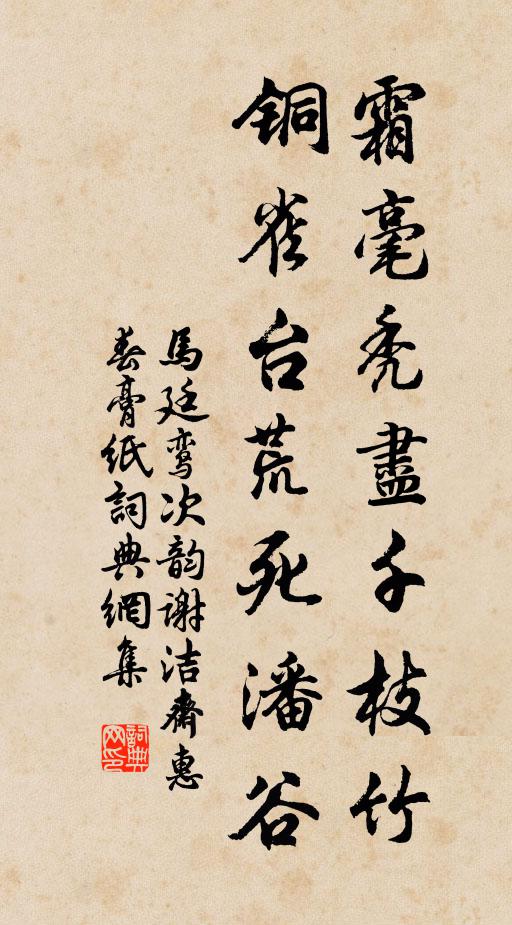 霜毫秃盡千枝竹
铜雀台荒死潘谷
馬廷鸾次韵谢洁齋惠
春膏纸詞典網集
詞典
网印